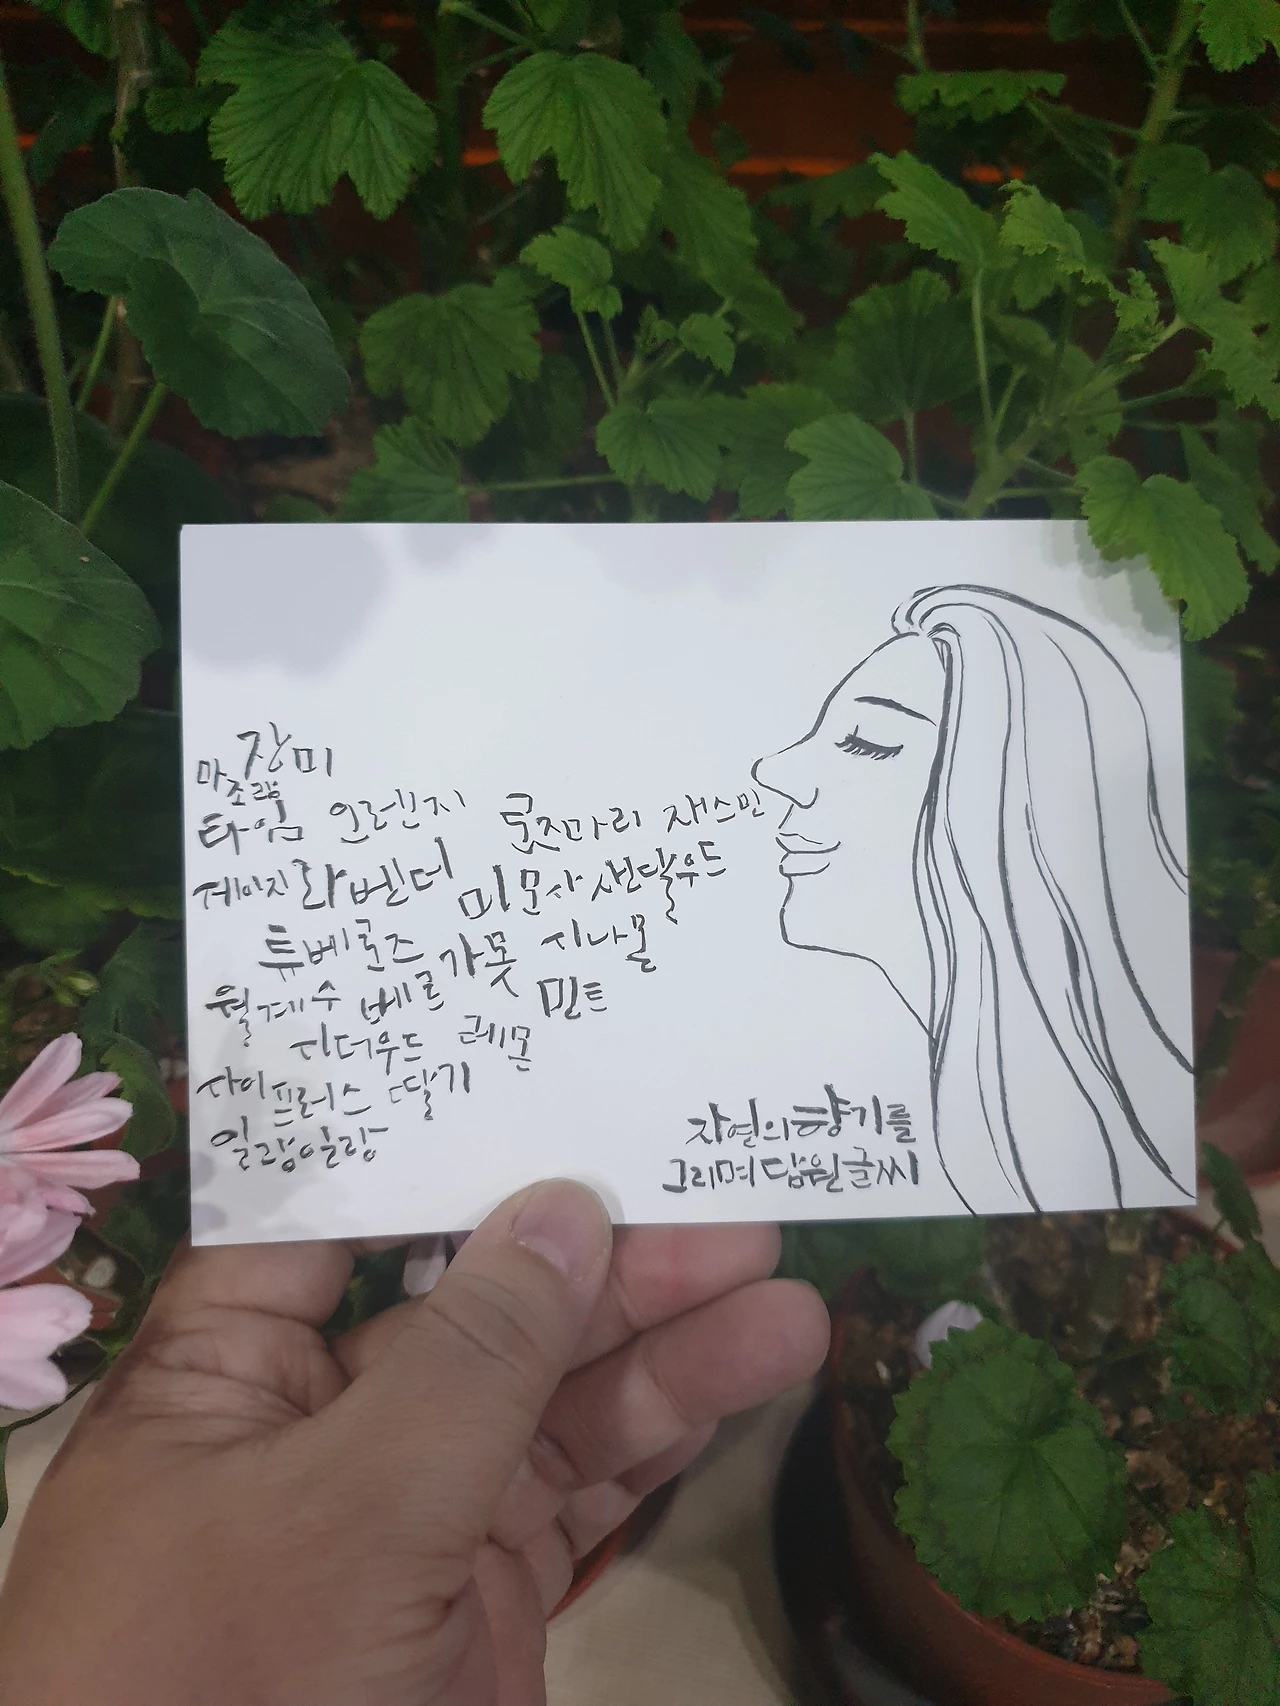 장미
마조람
타임 오렌지 로즈마리 재스민
세이지 라벤더 미모사 샌달우드
튜베로즈 가못 시나몰
월계수 베르 민트
시더우드 레몬
사이프러스 딸기
일랑일랑
자연의 향기를
그리며 담원글씨